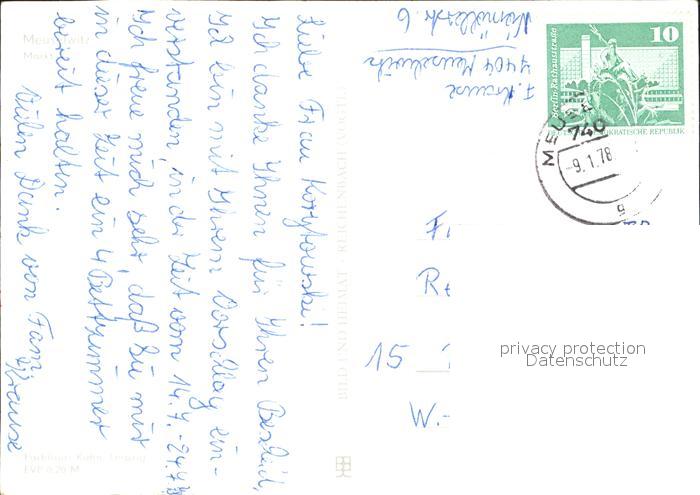 Meuselwitz
Markt
Liebe Frau Korytowski!
Ich danke Ihnen für Ihren Bescheid,
Ich bin mit Ihrem Vorschlag ein-
verstanden, in der Zeit vom 14.7.-24.7.78
Ich freue mich sehr, daß Sie mir
in dieser Zeit ein 4 Bettzimmer
bereit halten.
Vielen Dank von Fam.
Krause
EVP 0,20 M
BILD UND HEIMAT REICHENBACH (VOGTL)
F. Krause
7404 Meuselwitz
10
Berlin-Rathausstraße
KRATISCHE REPUBLIK
MEUSE
740
-9.1.78
a
F
R
15
W.-
privacy protection
Datenschutz